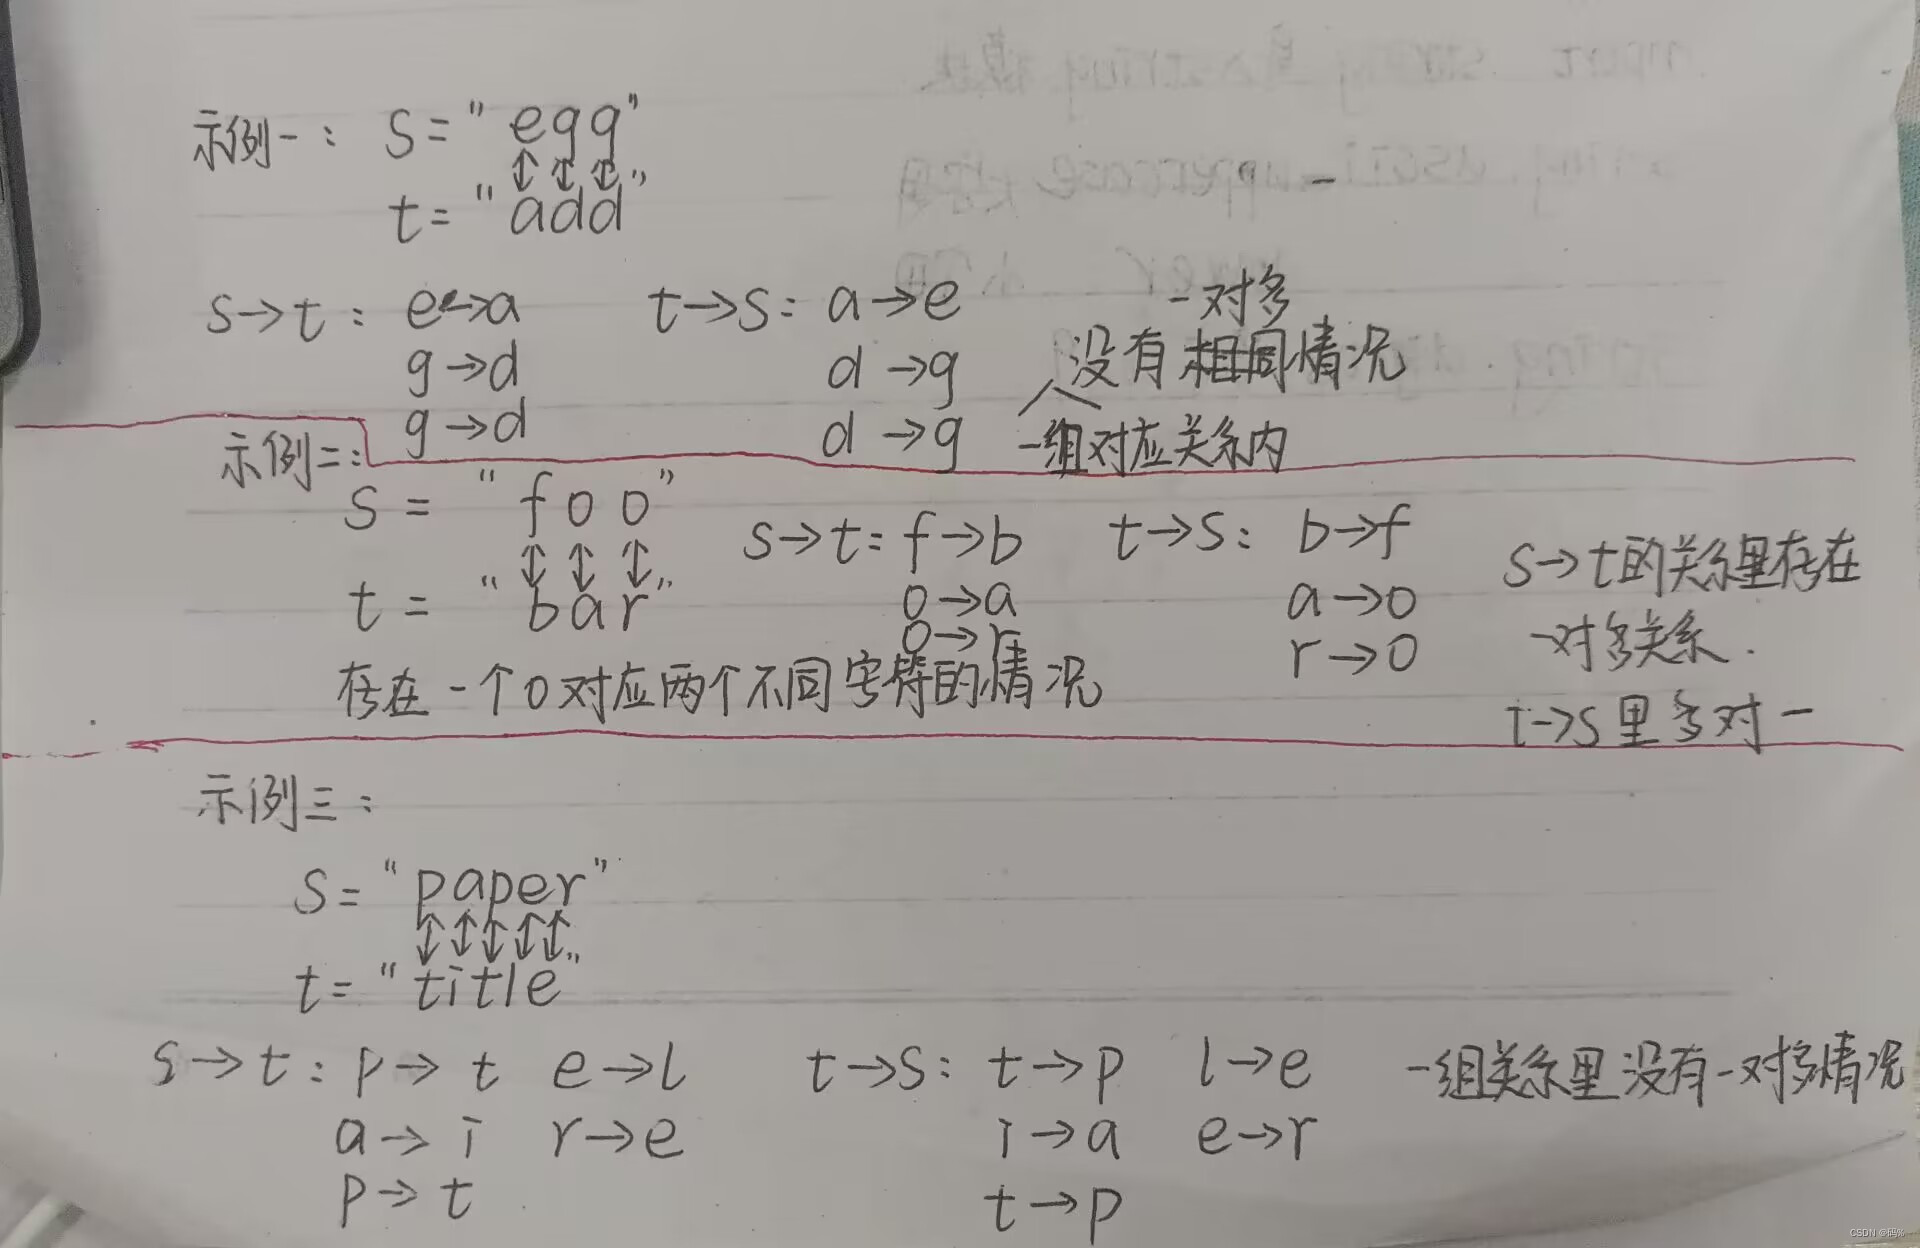 示例一： s = "egg"
t = "add"
s→t： e→a t→s： a→e 一对多
g→d d→g 没有相同情况
g→d d→g 一组对应关系内
示例二：
s = "foo"
s→t： f→b t→s： b→f s→t的关系里存在
t = "bar" o→a a→o
o→r r→o 一对多关系.
存在一个o对应两个不同字符的情况 t→s里多对一
示例三：
s = "paper"
t = "title"
s→t： p→t e→l t→s： t→p l→e 一组关系里没有一对多情况
a→i r→e i→a e→r
p→t t→p
CSDN @码%